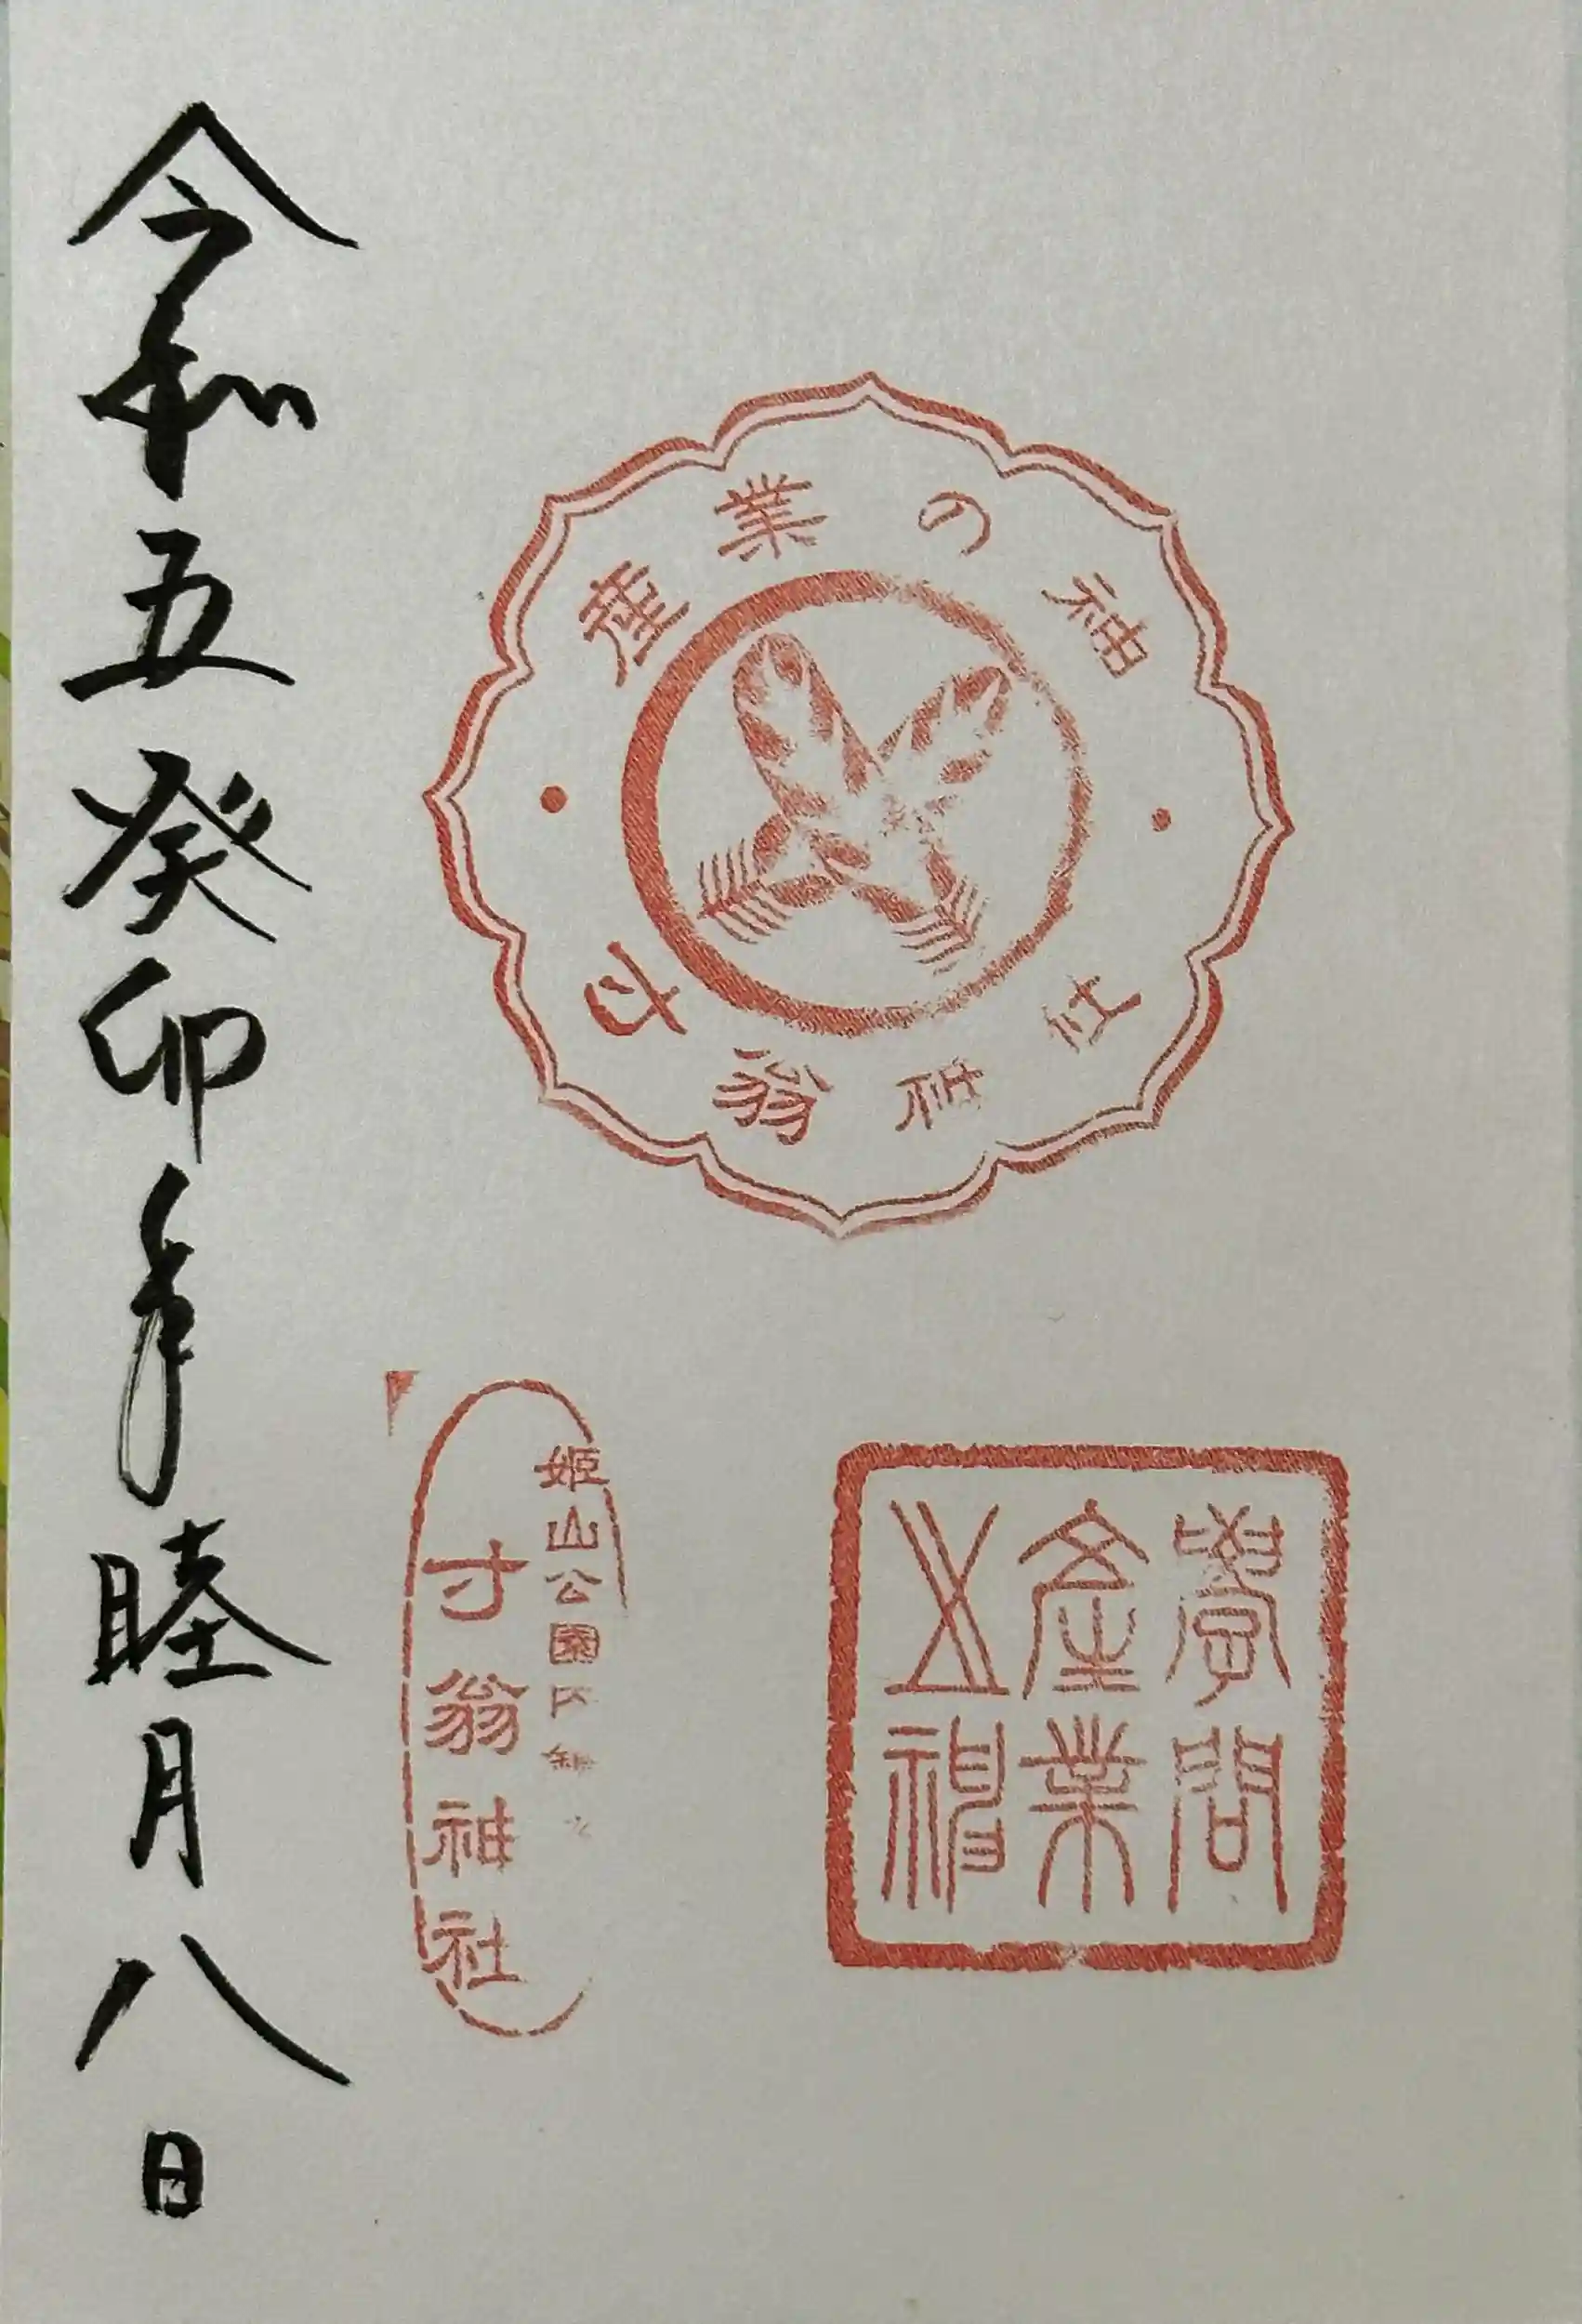 産業の神
寸翁神社
學問
産業
之神
姫山公園内
寸翁神社
令和五癸卯年睦月八日